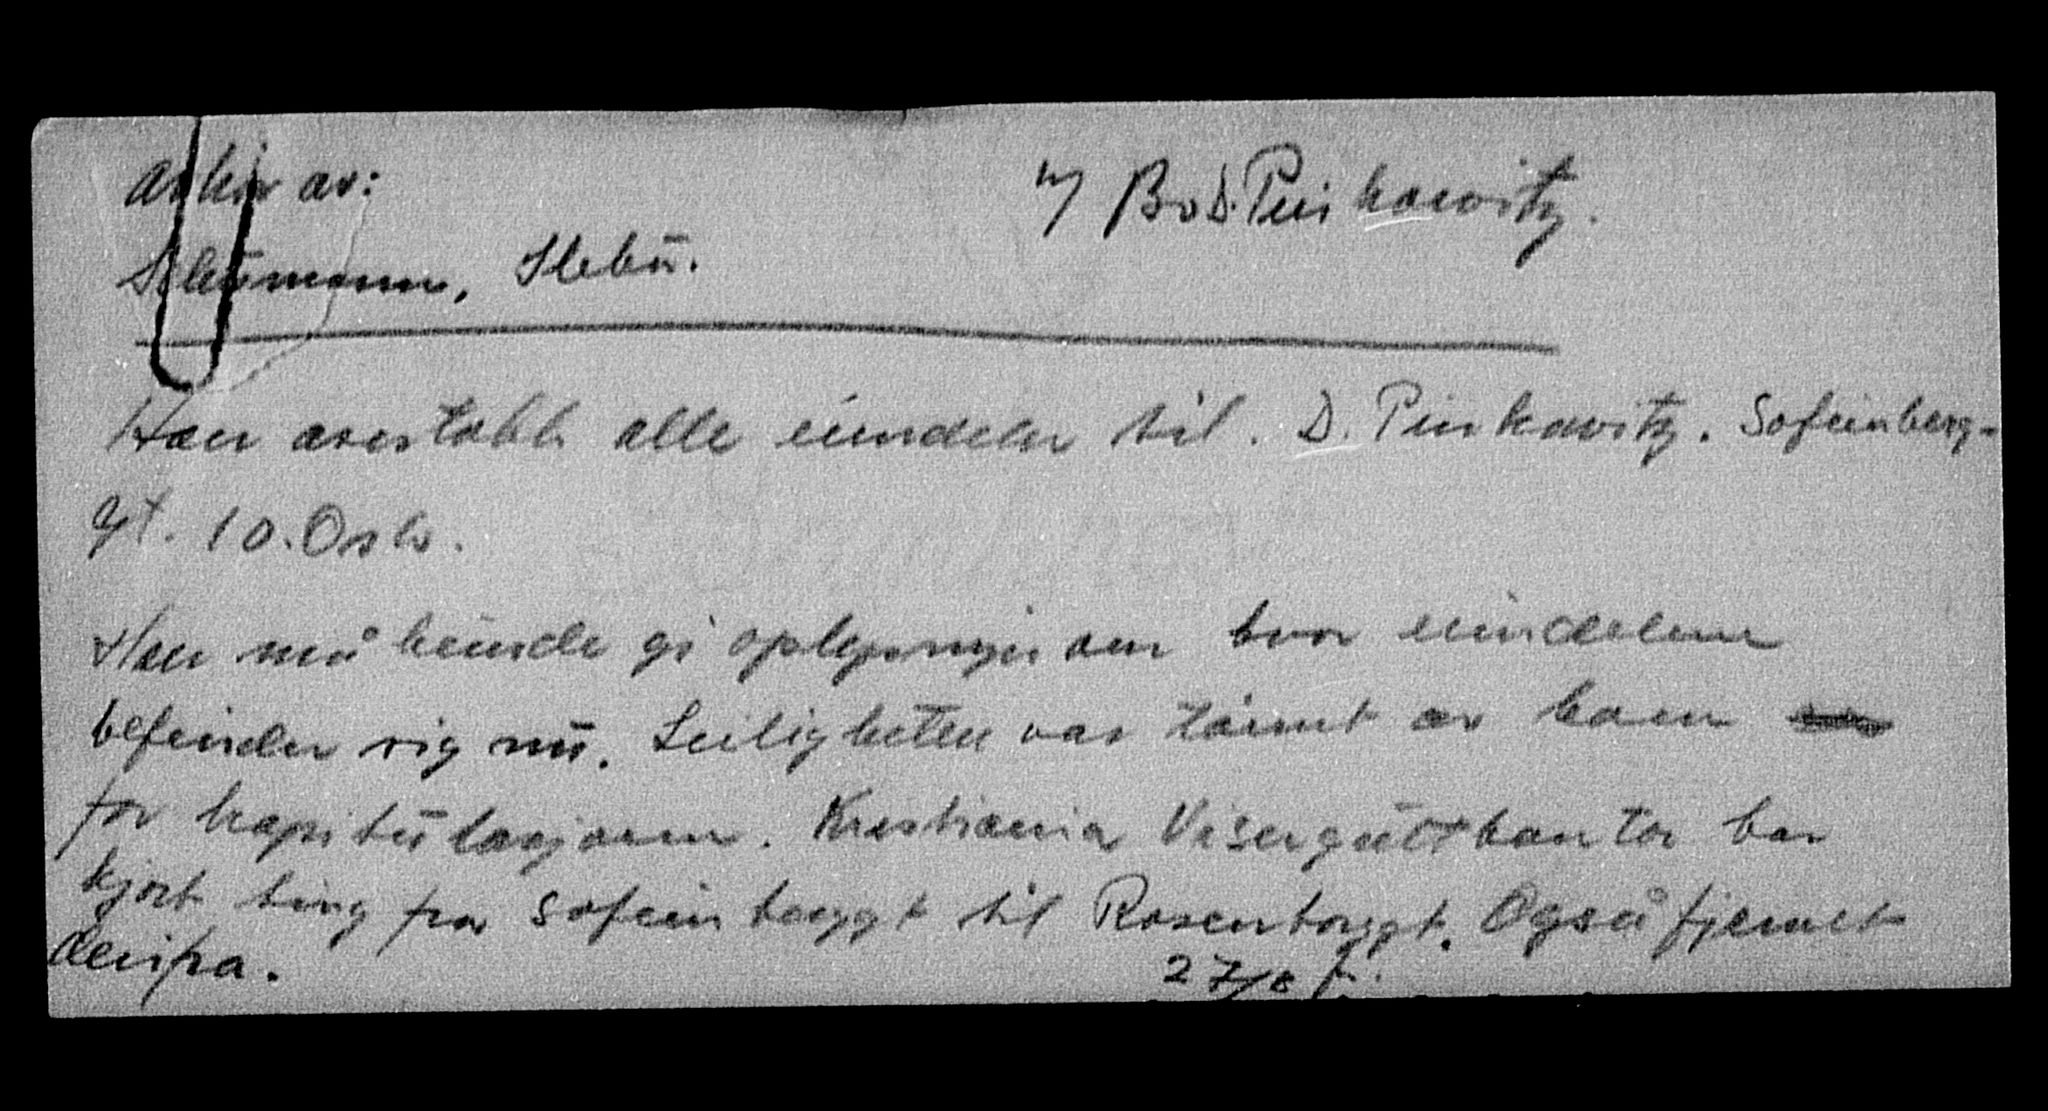 Arkiv av: Bo D. Pinkowitz.
Han overtok alle eiendeler til. D. Pinkowitz. Sofienberg-
gt. 10. Oslo.
Han må kunde gi oplysninger om hvor eiendelene
befinder sig nu. Leiligheten var tømt av ham
før kapitulasjonen. Kristiania Viserguttkontor har
kjørt ting fra Sofienberggt til Rosenborggt. Også fjernet
derifra. 27/8